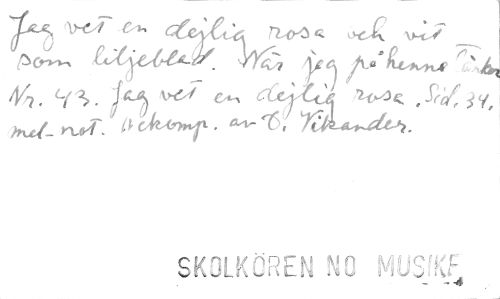 Jag vet en dejlig rosa och vit
som liljeblad. När jag på henne tänker
Nr. 43. Jag vet en dejlig rosa. Sid. 34.
mel-not. Ackomp. av D. Vikander.
SKOLKÖREN NO MUSIKF